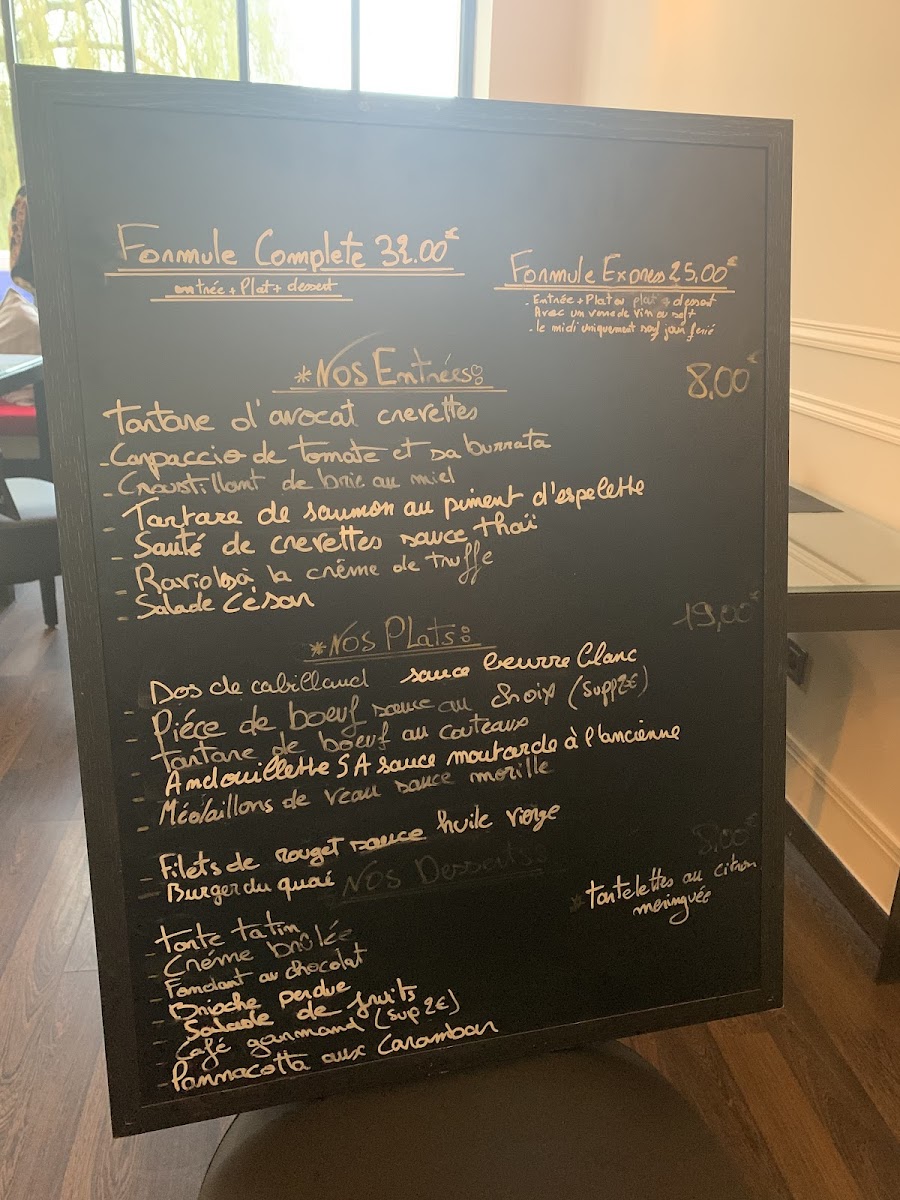 Formule Complete 32.00€
entrée + Plat + dessert
Formule Express 25,00€
- Entrée + Plat ou plat + dessert
Avec un verre de vin ou soft
- le midi uniquement sauf jour férié
*Nos Entrées:
8,00€
Tartare d'avocat crevettes
- Carpaccio de tomate et sa burrata
- Croustillant de brie au miel
- Tartare de saumon au piment d'espelette
- Sauté de crevettes sauce thaï
- Raviols à la crème de truffe
- Salade César
*Nos Plats:
19,00€
- Dos de cabillaud sauce beurre blanc
- Piéce de boeuf sauce au choix (supp 2€)
- tartare de boeuf au couteaux
- Andouillette 5A sauce moutarde à l'ancienne
- Médaillons de veau sauce morille
- Filets de rouget sauce huile vierge
- Burger du quai
Nos Desserts:
8,00€
* tartelettes au citron
meringuée
- tarte tatin
- Crème brûlée
- Fondant au chocolat
- Brioche perdue
- Salade de fruits
- Café gourmand (sup 2€)
- Pannacotta aux Carambar